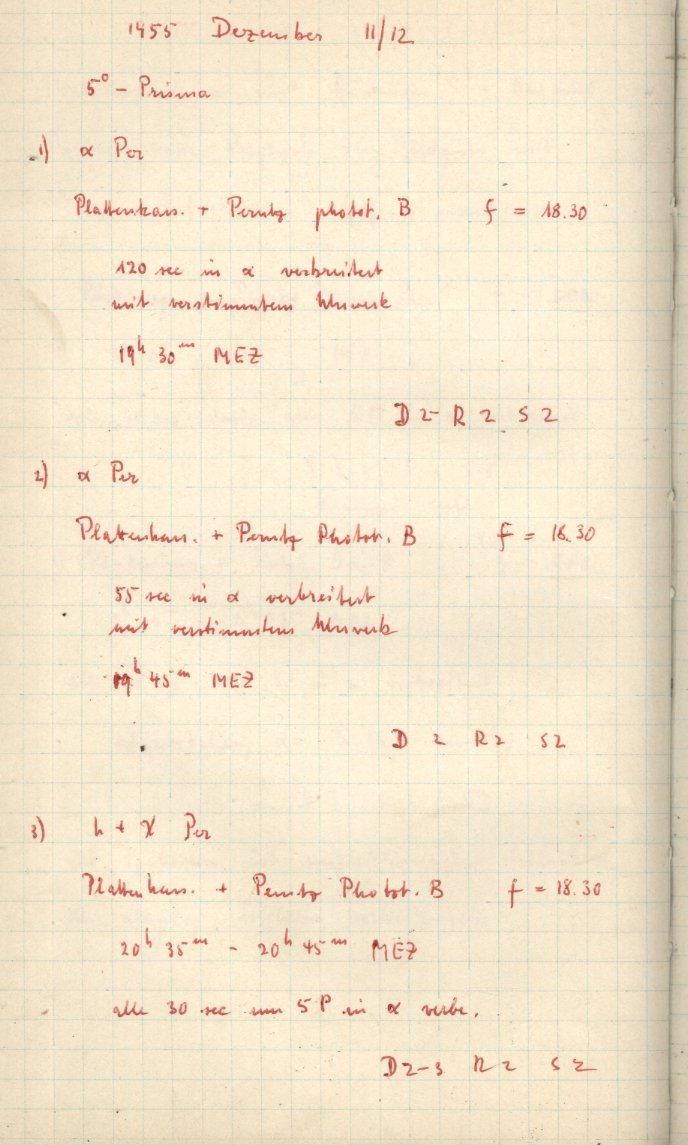 1955 Dezember 11/12
5° - Prisma
1) α Per
Plattenkass. + Perutz photot. B f = 18.30
120 sec in α verbreitert
mit verstimmtem Uhrwerk
19h 30m MEZ
D 2- R 2 S 2
2) α Per
Plattenkass. + Perutz Photot. B f = 18.30
55 sec in α verbreitert
mit verstimmtem Uhrwerk
19h 45m MEZ
D 2 R 2 S 2
3) h + χ Per
Plattenkass. + Perutz Photot. B f = 18.30
20h 35m - 20h 45m MEZ
alle 30 sec um 5 P in α verbr.
D 2-3 R 2 S 2